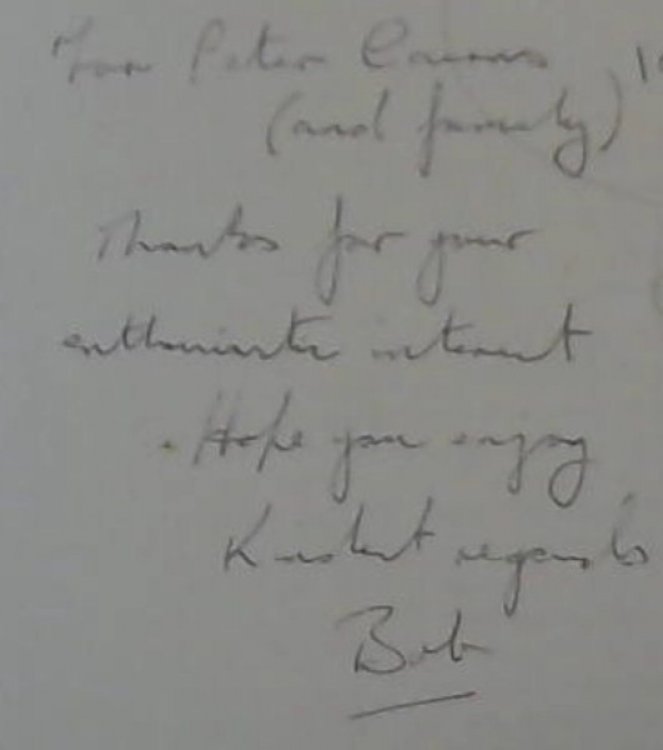 For Peter
(and family)
Thanks for your
enthusiastic interest
. Hope you enjoy
Kindest regards
Bob